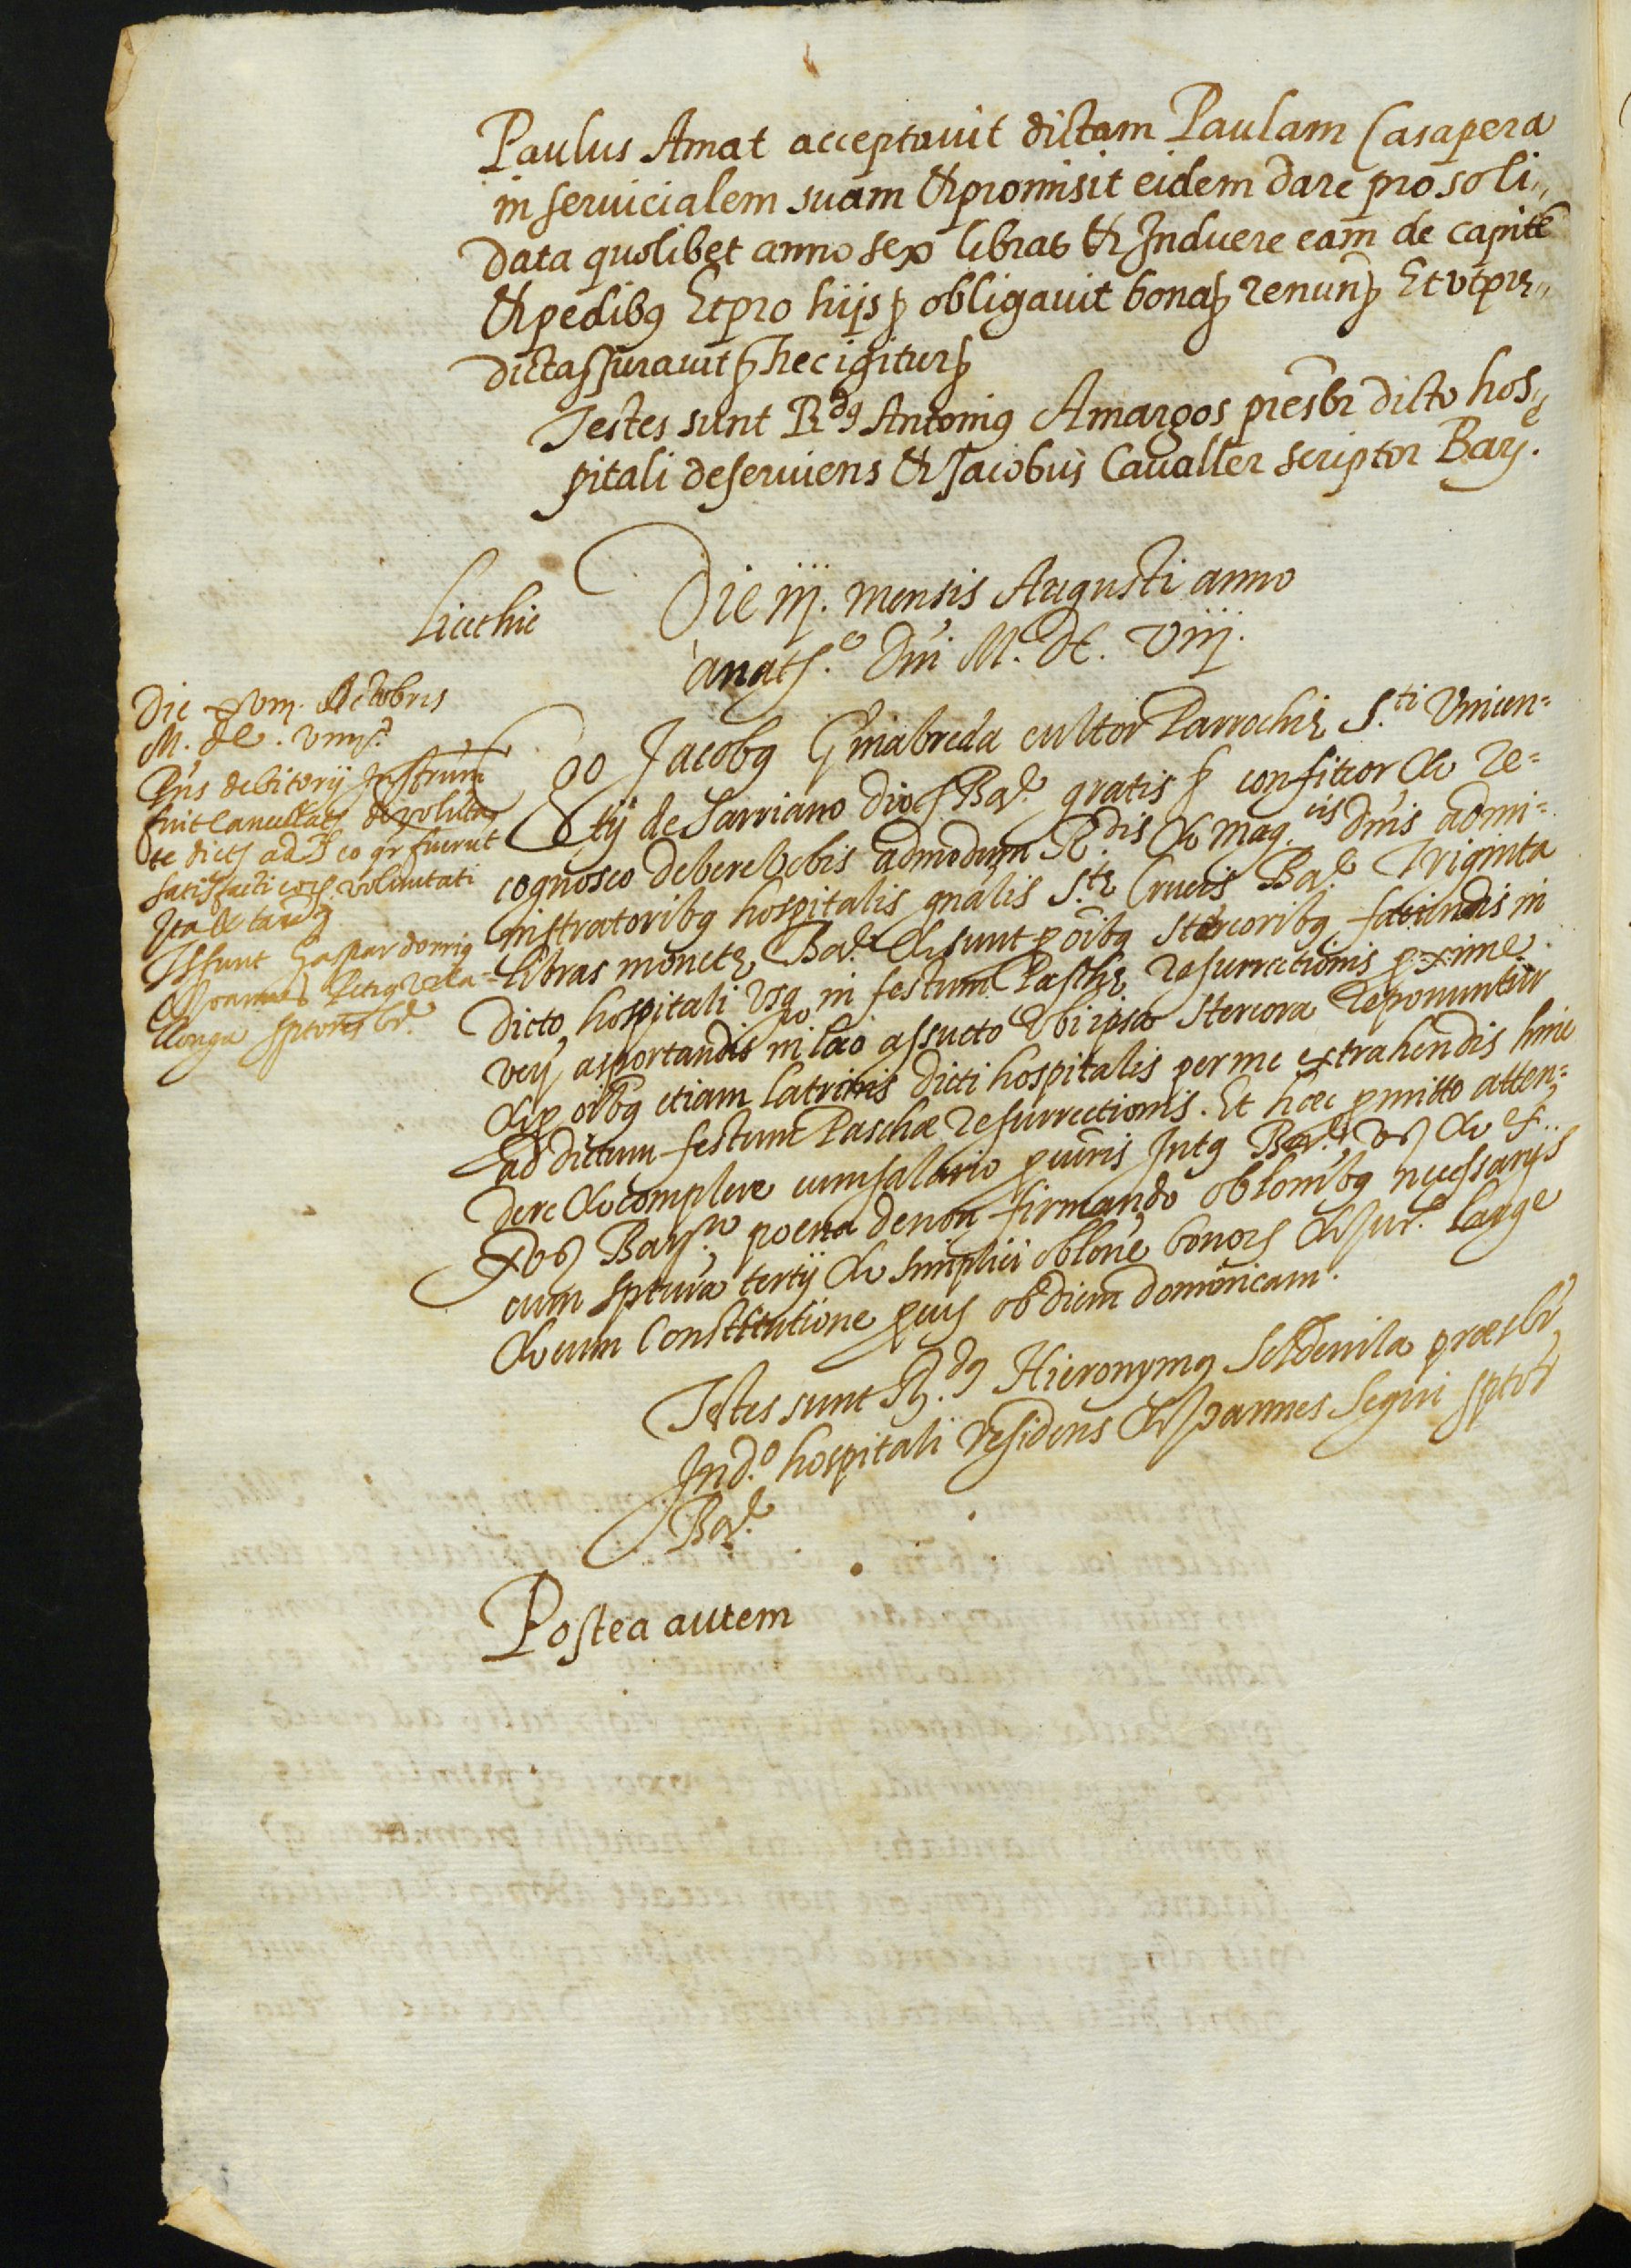 Paulus Amat acceptavit dictam Paulam Casapera
in servicialem suam & promisit eidem dare pro soli,,
data quolibet anno sex libras & Induere eam de capite
& pedibꝯ Et pro hijs ꝑ obligavit bona ꝑ renun ꝑ Et ut prę,,
dicta ꝑ Juravit ꝑ hec igitur ꝑ
Testes sunt R.dꝯ Antoniꝯ Amargos presbr dicto hos,,
pitali deserviens & Jacobus Cavaller scriptor Barz.
Die iij. mensis Augusti anno
anatz.e Dni M. DC. viij.
Licet hic
Die xviij. Octobris
M. dc. viiij.
Pns debitorij Instrum
fuit cancellatz de volunta
te dictz ad
satisfacti voluntati
Ts sunt Gaspar
Joannes Petrꝯ Vila
llonga sptores br.
Ego Jacobꝯ Ginabreda cultor Parrochię S.ti Vincen=
tij de Sarriano dioc Bar. gratis ꝑ confiteor & re=
cognosco debere Vobis admodum R.dis & mag.cis dnis admi=
nistratoribꝯ hospitalis gnalis S.tę Crucis Bar. Triginta
libras monetę Bar. & sunt ꝓ oibꝯ stercoribꝯ faciendis in
dicto hospitali usq in festum Paschę resurrectionis proxime.
ven, asportandis in loco assueto Ubi ipsa stercora deponuntur
& ꝓ oibꝯ etiam latrinis dicti hospitalis per me extrahendis hinc
ad dictum festum Paschæ resurrectionis. Et hæc ꝓmitto atten=
dere & complere cum salario ꝓcuris Intꝯ Bar. vs & ex..
x vs Barz. poena de non firmando oblonibꝯ necessarijs
cum sptura tertij & simplici oblone bonorz & jur. large
& cum Constitutione ob diem dominicam.
Testes sunt R.dꝯ Hieronymꝯ Soldevila præsbr
In d.o hospitali residens & Joannes Seguí sptor
Bar.
Postea autem